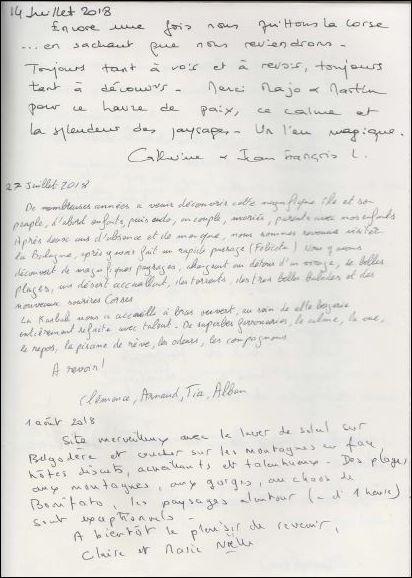 14 Juillet 2018
Encore une fois nous quittons la Corse
... en sachant que nous reviendrons -
Toujours tant à voir et à revoir, toujours
tant à découvrir - Merci Majo & Martin
pour ce havre de paix, ce calme et
la splendeur des paysages - Un lieu magique.
Catherine & Jean François L.
27 Juillet 2018
De nombreuses années à venir découvrir cette magnifique île et son
peuple, d'abord enfants, puis ados, en couple, mariés, parents avec nos enfants
Après deux ans d'absence et de manque, nous sommes revenus visiter
la Balagne, après y avoir fait un rapide passage (Feliceto) Nous y avons
découvert de magnifiques paysages, changeant au détour d'un virage, de belles
plages, un désert accueillant, des torrents, des très belles balades et des
nouveaux sourires Corses
La Kasbah nous a accueilli à bras ouvert, au sein de cette bergerie
entièrement refaite avec talent. De superbes ferronneries, le calme, la vue,
le repos, la piscine de rêve, les odeurs, les compagnons
A revoir!
Clémence, Arnaud, Tia, Alban
1 août 2018
Site merveilleux avec le lever de soleil sur
Belgodère et coucher sur les montagnes en face
hôtes discrets, accueillants et talentueux - Des plages,
aux montagnes, aux gorges, au chaos de
Bonifato, les paysages alentour (- d'1 heure)
sont exceptionnels -
A bientôt le plaisir de revenir,
Claire et Marie Noëlle